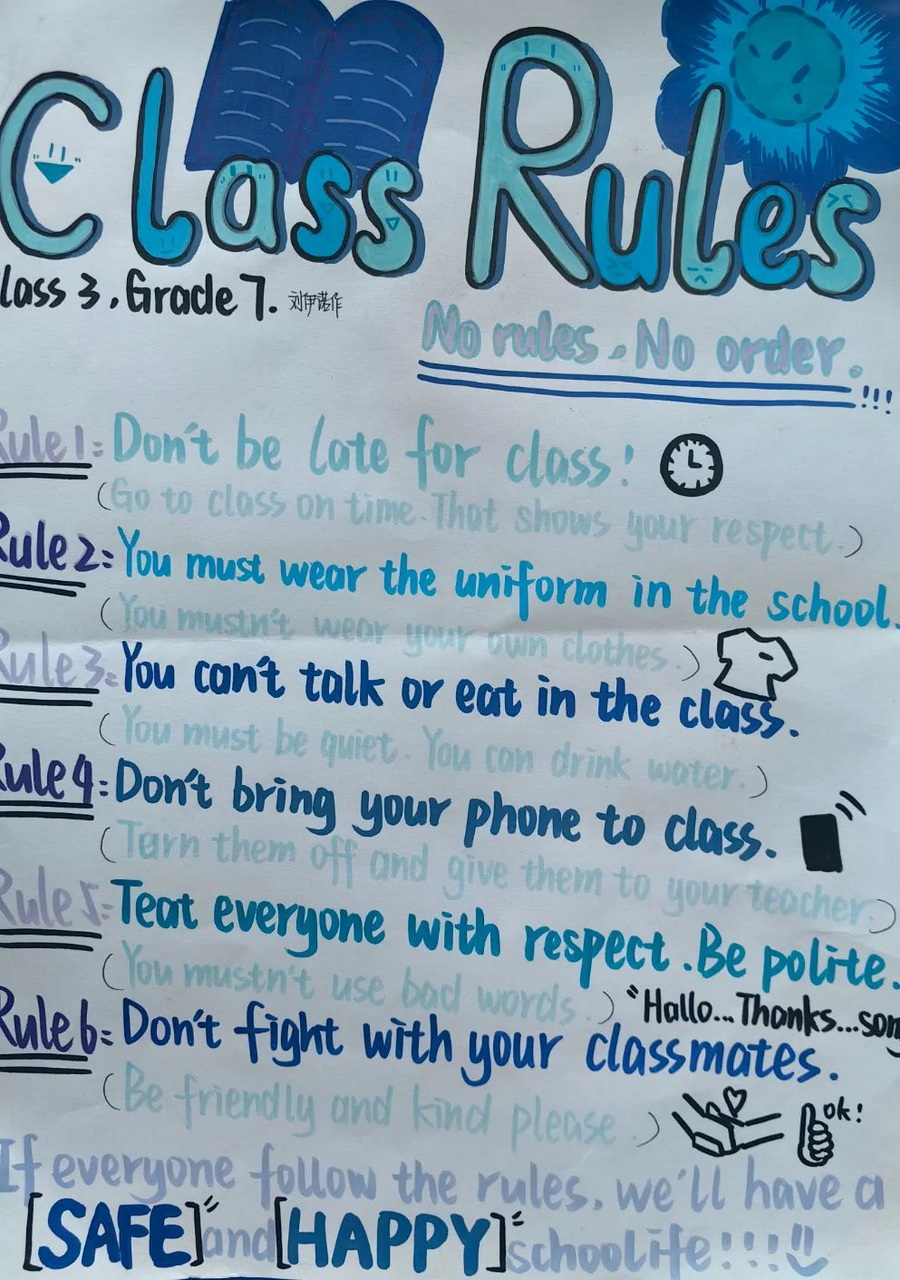 Class Rules
lass 3, Grade 7. 刘伊诺作
No rules, No order.!!!
Rule 1: Don't be late for class!
(Go to class on time. That shows your respect.)
Rule 2: You must wear the uniform in the school.
(You mustn't wear your own clothes.)
Rule 3: You can't talk or eat in the class.
(You must be quiet. You can drink water.)
Rule 4: Don't bring your phone to class.
(Turn them off and give them to your teacher.)
Rule 5: Teat everyone with respect. Be polite.
(You mustn't use bad words.) "Hallo...Thanks...
Rule 6: Don't fight with your classmates.
(Be friendly and kind please.)
ok!
If everyone follow the rules, we'll have a
[SAFE] and [HAPPY] schoolife!!!!